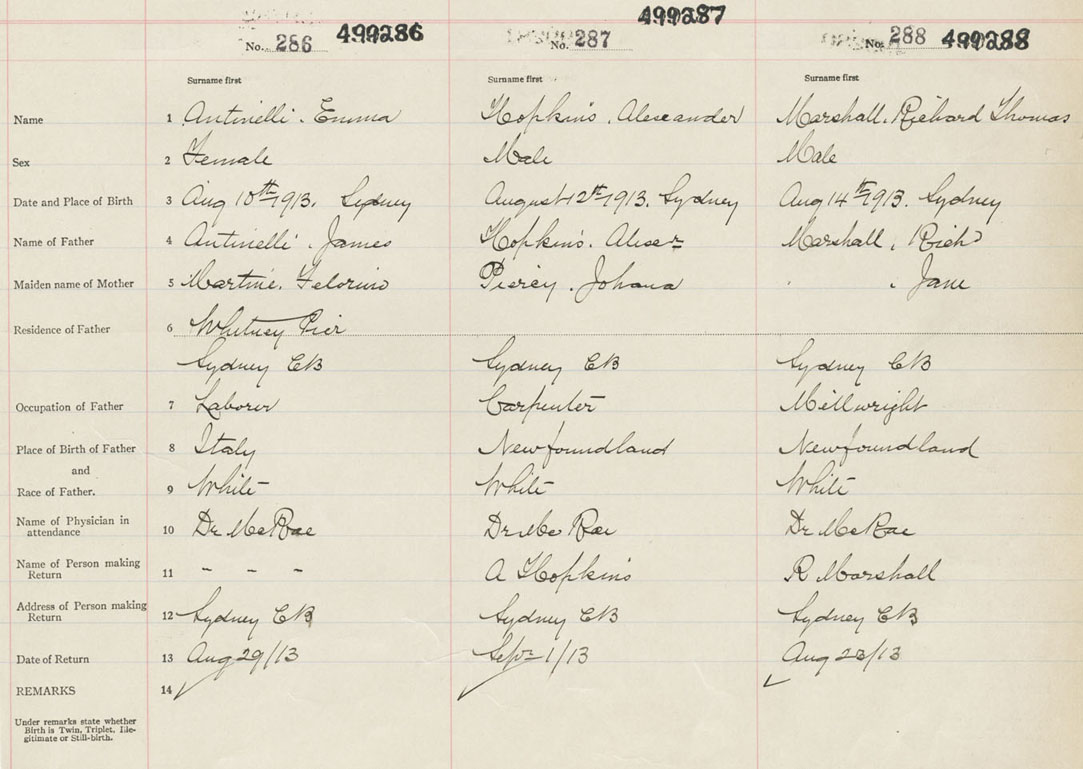 No. 286 499286 No. 287 499287 No. 288 499288
Surname first Surname first Surname first
Name 1 Antinelli. Emma Hopkins. Alexander Marshall. Richard Thomas
Sex 2 Female Male Male
Date and Place of Birth 3 Aug 10th 1913. Sydney August 12th 1913. Sydney Aug 14th 1913. Sydney
Name of Father 4 Antinelli. James Hopkins. Alexr Marshall, Richd
Maiden name of Mother 5 Martine. Piercy. Johana . Jane
Residence of Father 6 Whitney Pier
Sydney CB Sydney CB Sydney CB
Occupation of Father 7 Laborer Carpenter Millwright
Place of Birth of Father 8 Italy Newfoundland Newfoundland
and
Race of Father. 9 White White White
Name of Physician in
attendance 10 Dr McRae Dr McRae Dr McRae
Name of Person making
Return 11 - - - A Hopkins R Marshall
Address of Person making
Return 12 Sydney CB Sydney CB Sydney CB
Date of Return 13 Aug 29/13 Sept 1/13 Aug 23/13
REMARKS 14
Under remarks state whether
Birth is Twin, Triplet, Ille-
gitimate or Still-birth.